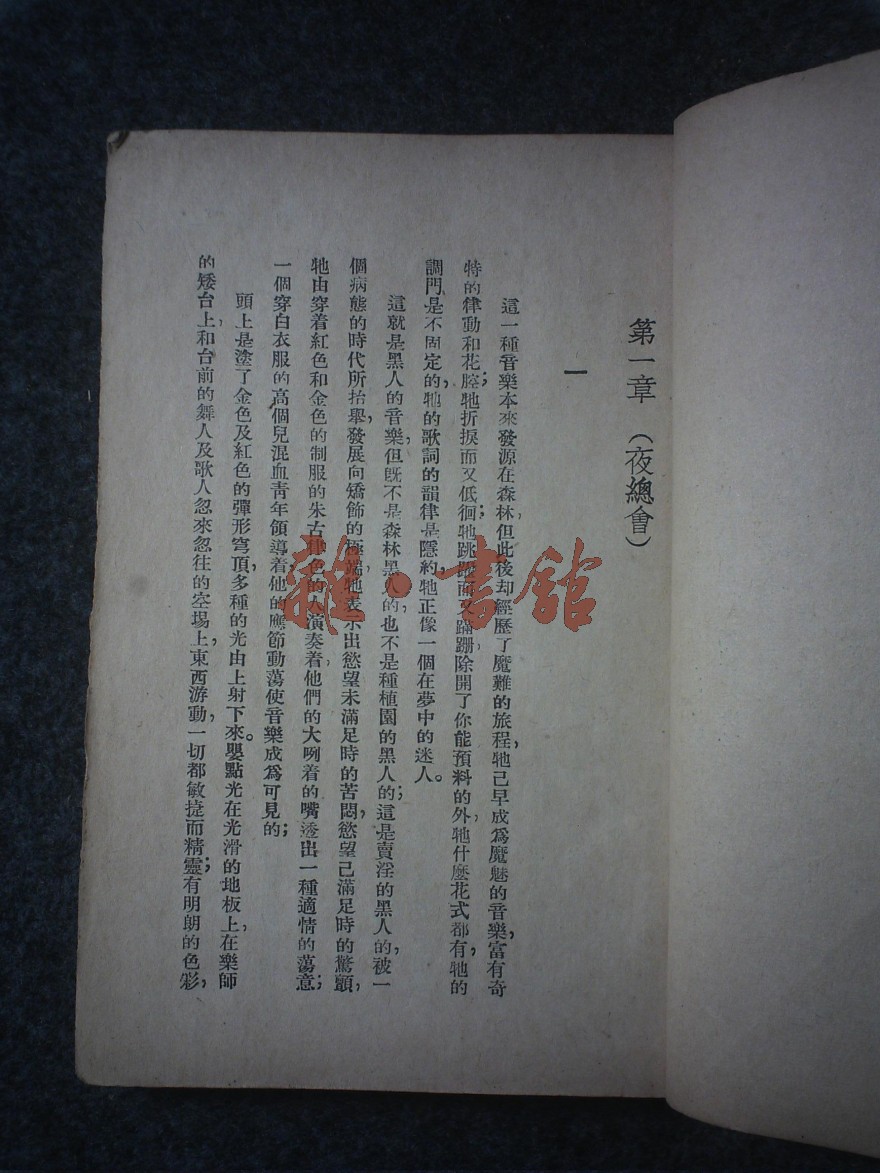 第一章 (夜總會)
一
這一種音樂本來發源在森林,但此後却經歷了魔難的旅程,牠已早成爲魔魅的音樂,富有奇
特的律動和花腔;牠折捩而又低徊;牠跳躍而又蹣跚,除開了你能預料的外,牠什麼花式都有,牠的
調門是不固定的,牠的歌詞的韻律是隱約,牠正像一個在夢中的迷人。
這就是黑人的音樂,但旣不是森林黑人的,也不是種植園的黑人的;這是賣淫的黑人的,被一
個病態的時代所抬舉,發展向矯飾的極端,牠表示出慾望未滿足時的苦悶,慾望已滿足時的驚顫,
牠由穿着紅色和金色的制服的朱古律色的人演奏着,他們的大咧着的嘴透出一種適情的蕩意;
一個穿白衣服的高個兒混血靑年領導着,他的應節動蕩使音樂成爲可見的;
頭上是塗了金色及紅色的彈形穹頂,多種的光由上射下來。嬰點光在光滑的地板上,在樂師
的矮台上,和台前的舞人及歌人忽來忽往的空場上,東西游動,一切都敏捷而精靈;有明朗的色彩,
雜·書館